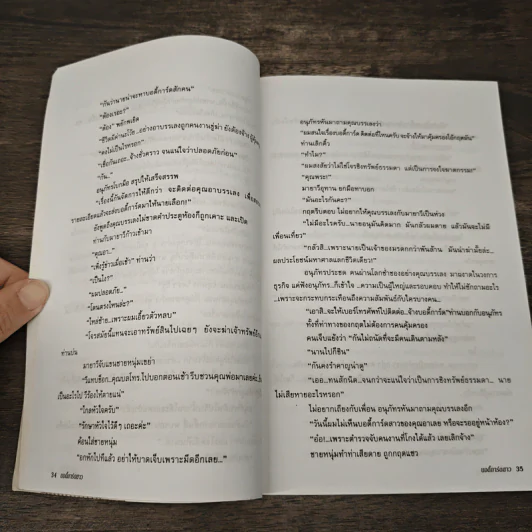 "กันว่านายน่าจะหาบอดี้การ์ดสักคน"
"ต้องเรอะ?"
"ต้อง" พยักพเยิด
"ชีวิตมีค่านะโว้ย...อย่างอาบรรเลงถูกคนงานขู่ฆ่า ยังต้องจ้าง
"คงไม่เป็นไรหรอก"
"เชื่อกันเถอะ..จ้างชั่วคราว จนแน่ใจว่าปลอดภัยก่อน"
"กัน..."
อนุภัทรโบกมือ สรุปให้เสร็จสรรพ
"เรื่องนี้กันจัดการให้ดีกว่า จะติดต่อคุณอาบรรเลง
รายละเอียดแล้วจะส่งบอดี้การ์ดมาให้นายเลือก!"
ยังพูดถึงคุณบรรเลงไม่ขาดคำประตูห้องก็ถูกเคาะ และเปิด
ท่านกับมายาวีก้าวเข้ามา
"คุณอา..."
"เพิ่งรู้ข่าวเมื่อเช้า" ท่านว่า
"เป็นไง?"
"ผมปลอดภัย..."
"โดนตรงไหนล่ะ?"
"ไหล่ซ้าย..เพราะผมเอี้ยวตัวหลบ"
"โจรสมัยนี้แทนจะเอาทรัพย์สินไปเฉยๆ ยังจะฆ่าเจ้าทรัพย์อีก
ท่านบ่น
มายาวีจับแขนชายหนุ่มเขย่า
เป็นอะไรไป วีร้องไห้ตายแน่"
"โถตัวใจครับ"
"รักษาหัวใจไว้ดีๆ เถอะค่ะ"
ค้อนใส่ชายหนุ่ม
"อกหักไปทีแล้ว อย่าให้บาดเจ็บเพราะมีดอีกเลย..."
34 บอดี้การ์ดสาว
อนุภัทรหันมาถามคุณบรรเลงว่า
"ผมสนใจเรื่องบอดี้การ์ด ติดต่อที่ไหนครับ จะจ้างให้มาคุ้มครองไอ้กฤตมัน"
ท่านเลิกคิ้ว
"ทำไม?"
"ผมสงสัยว่าไม่ใช่โจรชิงทรัพย์ธรรมดา แต่เป็นการจงใจฆาตกรรม!"
"คุณพระ!"
มายาวีอุทาน ยกมือทาบอก
"มันอะไรกันคะ?"
กฤตรีบตอบ ไม่อยากให้คุณบรรเลงกับมายาวีเป็นห่วง
"ไม่มีอะไรครับ...นายอนุมันคิดมาก มันกลัวผมตาย แล้วมันจะไม่มี
เพื่อนเที่ยว"
"กลัวสิ...เพราะนายเป็นเจ้าของมรดกกว่าพันล้าน มันน่าฆ่ามั้ยล่ะ...
ผลประโยชน์มหาศาลแลกชีวิตเดียว!"
อนุภัทรประชด คนผ่านโลกช่ำชองอย่างคุณบรรเลง มาผงาดในวงการ
ธุรกิจ แต่ฟังอนุภัทร..ก็เข้าใจ ..ความเป็นผู้ใหญ่และรอบคอบ ทำให้ไม่ซักถามอะไร
..เพราะจะกระทบกระเทือนถึงความสัมพันธ์กับใครบางคน..
"เอาสิ..จะให้เบอร์โทรศัพท์ไปติดต่อ..จ้างบอดี้การ์ด" ท่านบอกกับอนุภัทร
ทั้งที่ท่าทางของกฤตไม่ต้องการคนคุ้มครอง
คนเจ็บแย้งว่า "กันไม่ถนัดที่จะมีคนเดินตามหลัง"
"นานไปก็ชิน"
"กันคงรำคาญน่าดู"
"เออ...ทนสักนิด..จนกว่าจะแน่ใจว่าเป็นการชิงทรัพย์ธรรมดา... นาย
ไม่เสียหายอะไรหรอก"
ไม่อยากเถียงกับเพื่อน อนุภัทรหันมาถามคุณบรรเลงอีก
"วันนี้ผมไม่เห็นบอดี้การ์ดสาวของคุณอาเลย หรือจะรออยู่หน้าห้อง?"
"อ๋อ!...เพราะตำรวจจับคนงานที่โกงได้แล้ว เลยเลิกจ้าง"
ชายหนุ่มทำท่าเสียดาย ถูกกฤตแซว
บอดี้การ์ดสาว 35